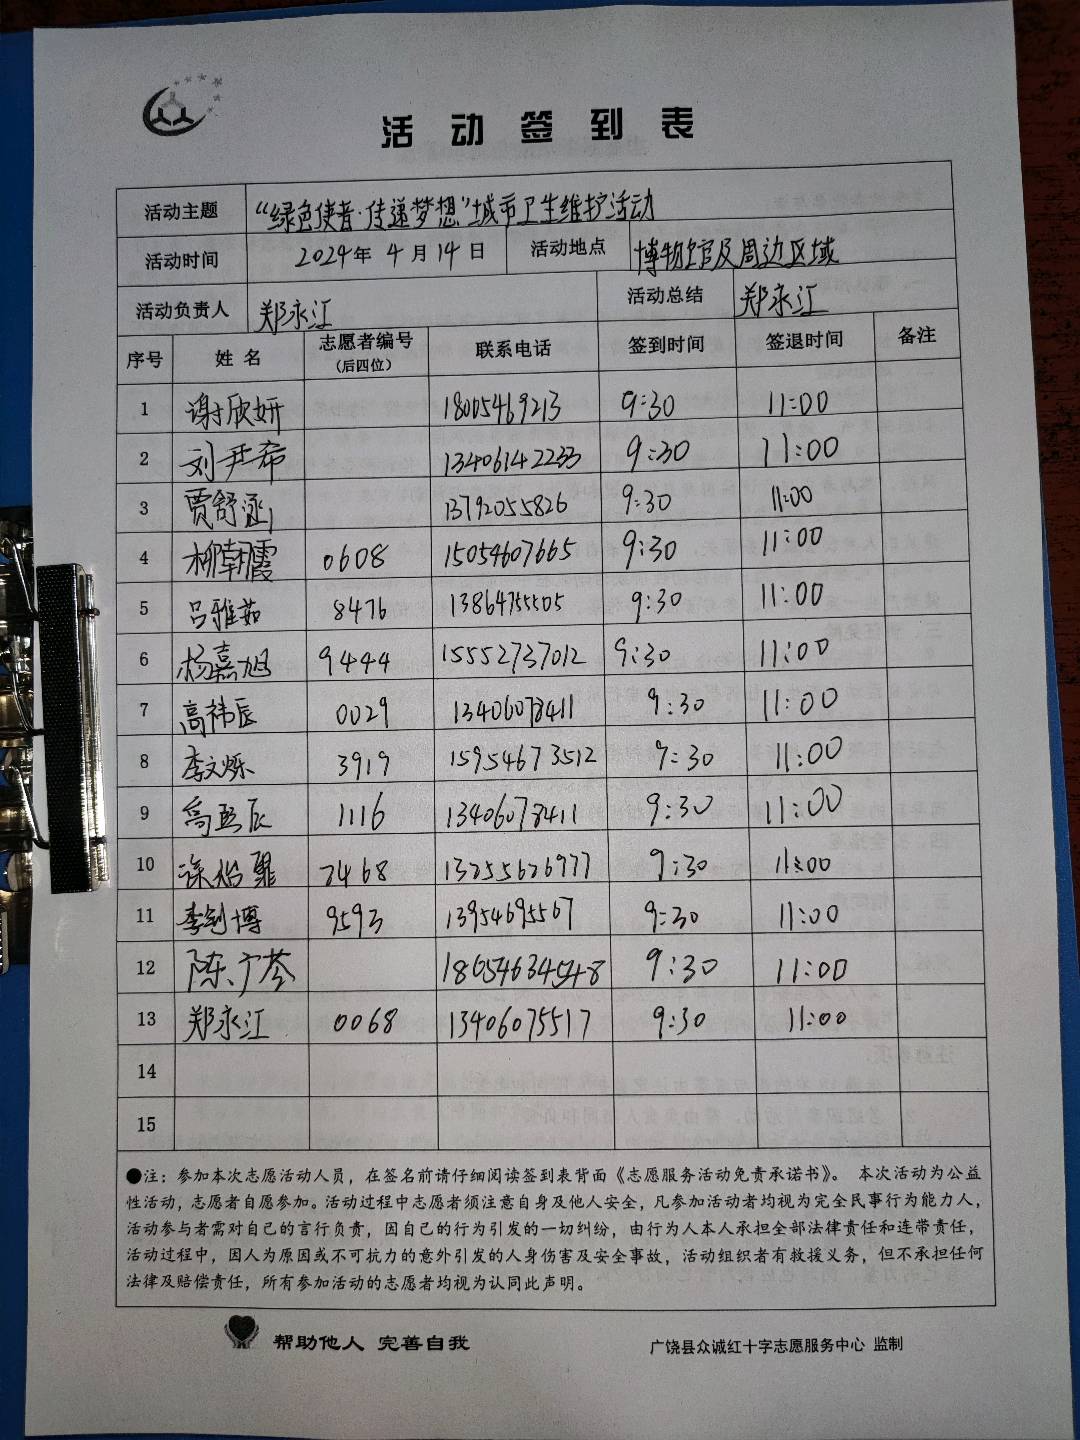 活动签到表
活动主题 “绿色使者·传递梦想”城市卫生维护活动
活动时间 2024年 4月 14日 活动地点 博物馆及周边区域
活动负责人 郑永江 活动总结 郑永江
序号 姓名 志愿者编号（后四位） 联系电话 签到时间 签退时间 备注
1 谢欣妍 18005469213 9:30 11:00
2 刘尹希 13406142233 9:30 11:00
3 贾舒涵 13792055826 9:30 11:00
4 柳朝霞 0608 15054607665 9:30 11:00
5 吕雅茹 8476 13864755505 9:30 11:00
6 杨嘉旭 9444 15552737012 9:30 11:00
7 高祎辰 0029 13406078411 9:30 11:00
8 李文烁 3919 15954673512 9:30 11:00
9 高熙辰 1116 13406078411 9:30 11:00
10 7468 13255626977 9:30 11:00
11 李剑博 9593 13954695567 9:30 11:00
12 陈广苓 18654634548 9:30 11:00
13 郑永江 0068 13406075517 9:30 11:00
14
15
●注：参加本次志愿活动人员，在签名前请仔细阅读签到表背面《志愿服务活动免责承诺书》。 本次活动为公益
性活动，志愿者自愿参加。活动过程中志愿者须注意自身及他人安全，凡参加活动者均视为完全民事行为能力人，
活动参与者需对自己的言行负责，因自己的行为引发的一切纠纷，由行为人本人承担全部法律责任和连带责任，
活动过程中，因人为原因或不可抗力的意外引发的人身伤害及安全事故，活动组织者有救援义务，但不承担任何
法律及赔偿责任，所有参加活动的志愿者均视为认同此声明。
帮助他人 完善自我 广饶县众诚红十字志愿服务中心 监制